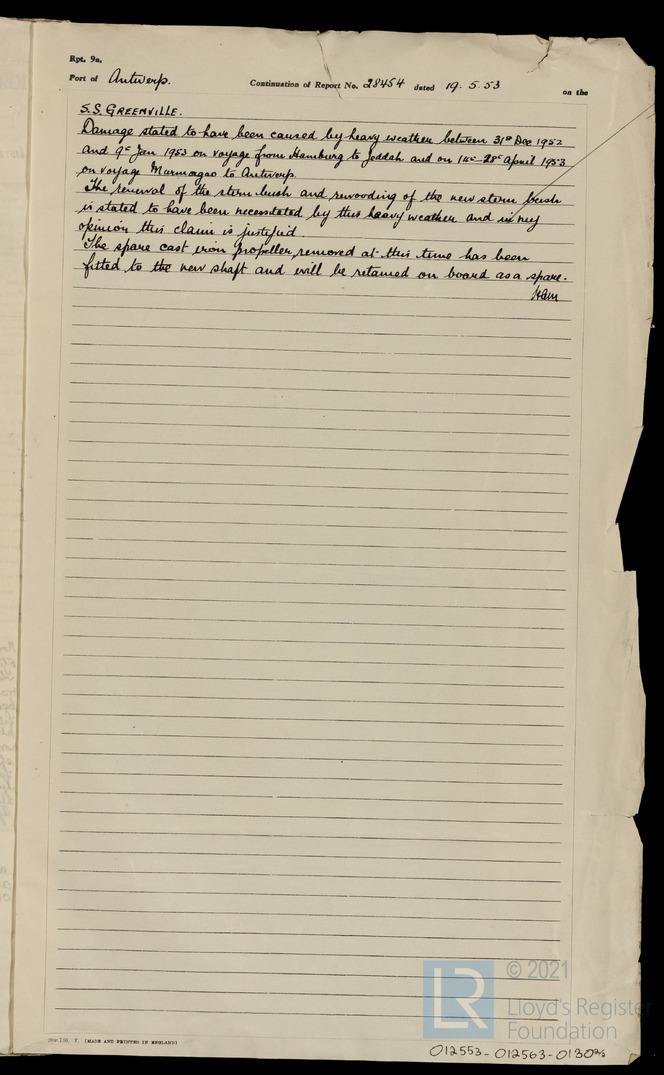 Rpt. 9a.
Port of Antwerp. Continuation of Report No. 28454 dated 19.5.53 on the
S.S. GREENVILLE.
Damage stated to have been caused by heavy weather between 31st Dec 1952
and 9th Jan 1953 on voyage from Hamburg to Jeddah and on 14th-28th April 1953
on voyage Murmagao to Antwerp.
The renewal of the stern bush and rewooding of the new stern bush
is stated to have been necessitated by this heavy weather and in my
opinion this claim is justified.
The spare cast iron propeller removed at this time has been
fitted to the new shaft and will be retained on board as a spare.
T. (MADE AND PRINTED IN ENGLAND)
LR © 2021
Lloyd's Register
Foundation
012553-012563-0130